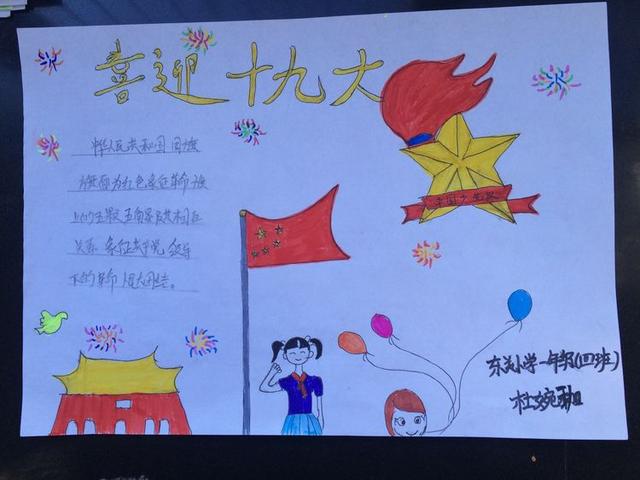 喜迎十九大
中华人民共和国国旗
旗面为红色象征革命旗
上的五颗五角星及其相互
关系象征共产党领导
下的革命人民大团结。
东关小学一年级(四班)
杜婉